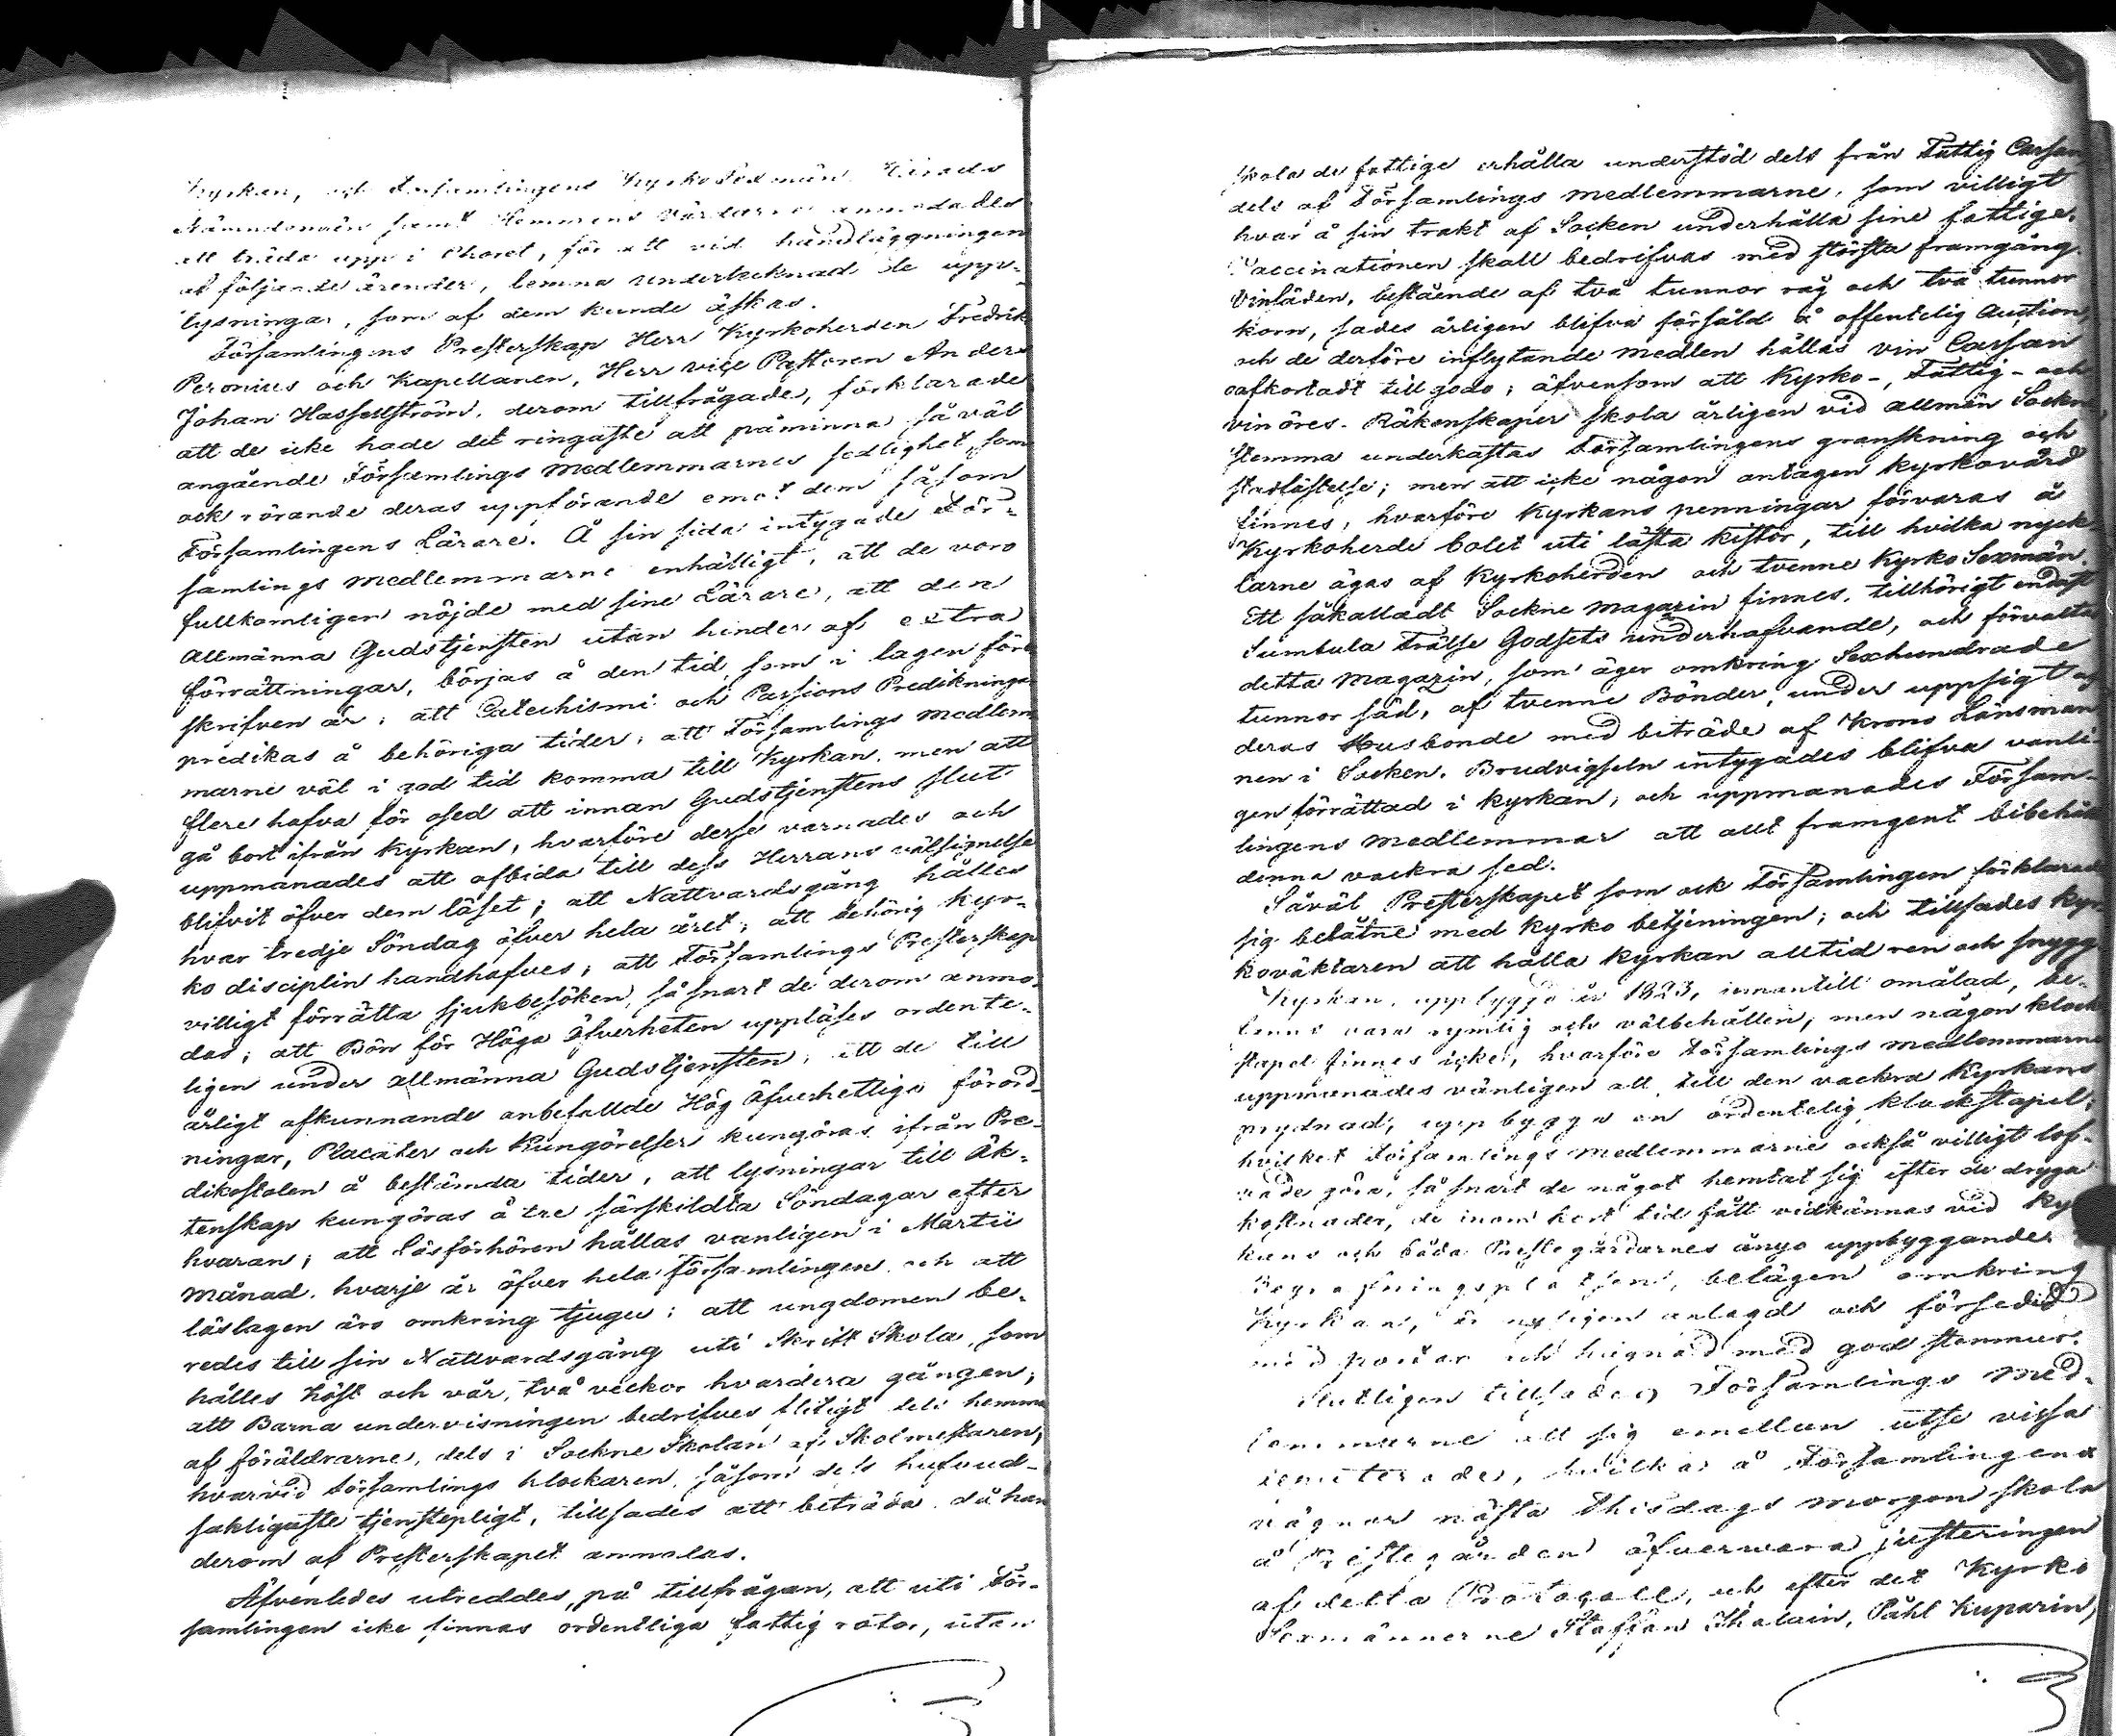 Kyrkan, och Församlingens Kyrko Sexmän, Härads
Nämndemän samt Hemmens Värdarne anmodades
att träda upp i Choret, för att vid handläggningen
af följande ärender, lemna undertecknad de upp-
lysningar, som af dem kunde äskas.
Församlingens Presterskap Herr Kyrkoherden Fredrik
Peronius och Kapellanen, Herr vice Pastoren Anders
Johan Hassellström, derom tillfrågade, förklarade
att de icke hade det ringaste att påminna så väl
angående Församlings Medlemmarnes sedlighet, som
ock rörande deras uppförande emot dem såsom
Församlingens Lärare. Å sin sida intygade För-
samlings Medlemmarne enhälligt, att de voro
fullkomligen nöjde med sine Lärare, att den
allmänna Gudstjensten utan hinder af extra
förrättningar, börjas å den tid, som i lagen före
skrifven är; att Catechismi och Passions Predikningar
predikas å behöriga tider; att Församlings Medlem
marne väl i god tid komma till Kyrkan, men att
flere hafva för osed att innan Gudstjenstens slut
gå bort ifrån Kyrkan, hvarföre desse varnades och
uppmanades att afbida till dess Herrans välsignelse
blifvit öfver dem läset; att Nattvardsgång hålles
hvar tredje Söndag öfver hela året; att behörig kyr-
ko disciplin handhafves; att Församlings Presterskap
villigt förrätta sjukbesöken, så snart de derom anmo-
das; att Bön för Höga Öfverheten uppläses ordente-
ligen under allmänna Gudstjensten; att de till
årligt afkunnande anbefallde Hög Öfverhetliga förord-
ningar, Placater och Kungörelser kungöras ifrån Pre-
dikostolen å bestämda tider, att lysningar till Äk-
tenskap kungöras å tre särskildta Söndagar efter
hvaran; att Läsförhören hållas vanligen i Martii
Månad, hvarje år öfver hela församlingen och att
läslagen äro omkring tjugu; att ungdomen be-
redes till sin Nattvardsgång uti Skrift Skola, som
hålles höst och vår, två veckor hvardera gången;
att Barna undervisningen bedrifves flitigt dels hemma
af föräldrarne, dels i Sockne Skolan af Skolmestaren,
hvarvid Församlings klockaren, såsom dess hufvud-
sakligaste tjenstepligt, tillsades att beträda, då han
derom af Presterskapet anmälas.
Äfvenledes utreddes, på tillfrågan, att uti För-
samlingen icke finnas ordentliga fattig rotar, utan
skola de fattige erhålla understöd dels från Fattig Cassan
dels af Församlings medlemmarne, som villigt
hvar å sin trakt af Socken underhålla sine fattige.
Vaccinationen skall bedrifvas med största framgång.
Vinsäden, bestående af två tunnor råg och två tunnor
korn, sades årligen blifva försåld å offentelig Auction,
och de derföre inflytande medlen hållas vin Cassan
oafkortadt till godo; äfvensom att Kyrko-, Fattig- och
vinöres- Räkenskaper skola årligen vid allmän Sockne
stemma underkastas Församlingens granskning och
stadfästelse; men att icke någon antagen kyrkovärd
finnes, hvarföre Kyrkans penningar förvaras å
Kyrkoherde bolet uti låsta kistor, till hvilka nyck
larne ägas af Kyrkoherden och tvenne Kyrko Sexmän.
Ett såkalladt Sockne Magazin finnes, tillhörigt endast
Sumbula Frälse Godsets underhafvande, och förvaltas
detta Magazin, som äger omkring Sexhundrade
tunnor säd, af tvenne Bönder, under uppsigt af
deras Husbonde med biträde af Krono Länsman
nen i Socken. Brudvigseln intygades blifva vanli
gen förrättad i kyrkan, och uppmanades Försam-
lingens Medlemmar att allt framgent bibehålla
denna vackra sed.
Såväl Presterskapet som ock Församlingen förklarade
sig belåtne med Kyrko betjeningen; och tillsades Kyr
koväktaren att hålla Kyrkan alltid ren och snygg
Kyrkan, uppbyggd år 1823, innantill omålad, be-
fanns vara rymlig och välbehållen, men någon klock
stapel finnes icke, hvarföre Församlings medlemmarne
uppmanades vänligen att till den vackra Kyrkans
prydnad, uppbygga en ordentelig klockstapel;
hvilket Församlings medlemmarne också villigt lof-
vade göra, så snart de något hemtat sig efter de dryga
kostnader, de inom kort tid fått vidkännas vid Kyr
kans och båda Prestegårdarnes ånyo uppbyggande.
Begrafningsplatsen, belägen omkring
Kyrkan, är nyligen anlagd och försedd
med portar och hägnad med god stenmur.
Slutligen tillsades Församlings Med-
lemmarne att sig emellan utse vissa
committerade, hvilka å Församlingens
vägnar nästa Thisdags morgon skola
å Prestegården öfvervara justeringen
af detta Protocoll, och efter det Kyrko
Sexmännerne Staffan Ihalain, Påhl Kuparin,